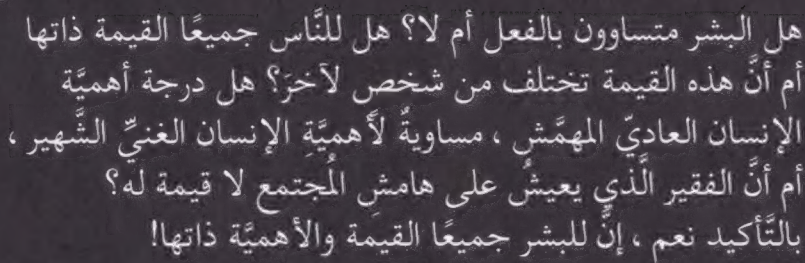 هل البشر متساوون بالفعل أم لا؟ هل للنَّاس جميعًا القيمة ذاتها
أم أنَّ هذه القيمة تختلف من شخصٍ لآخرَ؟ هل درجة أهميَّة
الإنسان العاديّ المهمَّش ، مساويةٌ لأهميَّةِ الإنسان الغنيِّ الشَّهير ،
أم أنَّ الفقير الَّذي يعيشُ على هامشِ المُجتمع لا قيمة له؟
بالتَّأكيد نعم ، إنَّ للبشر جميعًا القيمة والأهميَّة ذاتها!